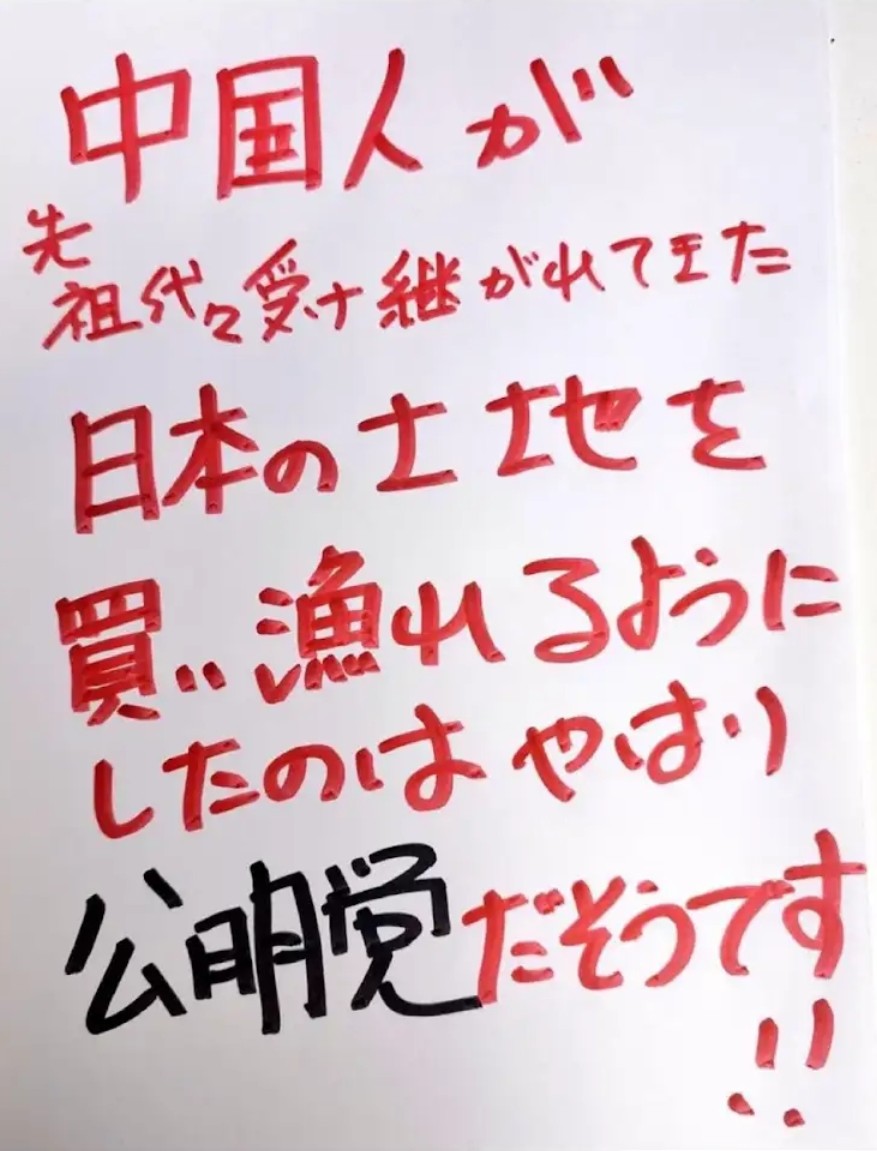 中国人が
先祖代々受け継がれてきた
日本の土地を
買い漁れるように
したのはやはり
公明党だそうです
!!